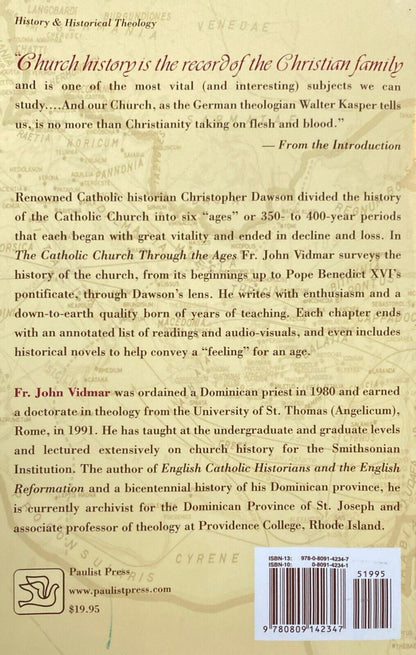 History & Historical Theology
"Church history is the record of the Christian family
and is one of the most vital (and interesting) subjects we can
study....And our Church, as the German theologian Walter Kasper tells
us, is no more than Christianity taking on flesh and blood."
— From the Introduction
Renowned Catholic historian Christopher Dawson divided the history
of the Catholic Church into six "ages" or 350- to 400-year periods
that each began with great vitality and ended in decline and loss. In
The Catholic Church Through the Ages Fr. John Vidmar surveys the
history of the church, from its beginnings up to Pope Benedict XVI's
pontificate, through Dawson's lens. He writes with enthusiasm and a
down-to-earth quality born of years of teaching. Each chapter ends
with an annotated list of readings and audio-visuals, and even includes
historical novels to help convey a "feeling" for an age.
Fr. John Vidmar was ordained a Dominican priest in 1980 and earned
a doctorate in theology from the University of St. Thomas (Angelicum),
Rome, in 1991. He has taught at the undergraduate and graduate levels
and lectured extensively on church history for the Smithsonian
Institution. The author of English Catholic Historians and the English
Reformation and a bicentennial history of his Dominican province, he
is currently archivist for the Dominican Province of St. Joseph and
associate professor of theology at Providence College, Rhode Island.
CYRENE
Paulist Press
www.paulistpress.com
$19.95
ISBN-13: 978-0-8091-4234-7
ISBN-10: 0-8091-4234-1
51995
9 780809 142347